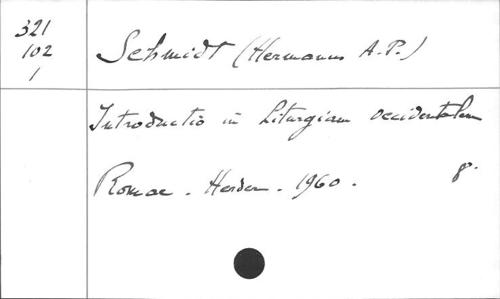 321
102
1
Schmidt (Hermanus A.P.)
Introductio in Liturgiam occidentalem
Romae. Herder. 1960. 8°